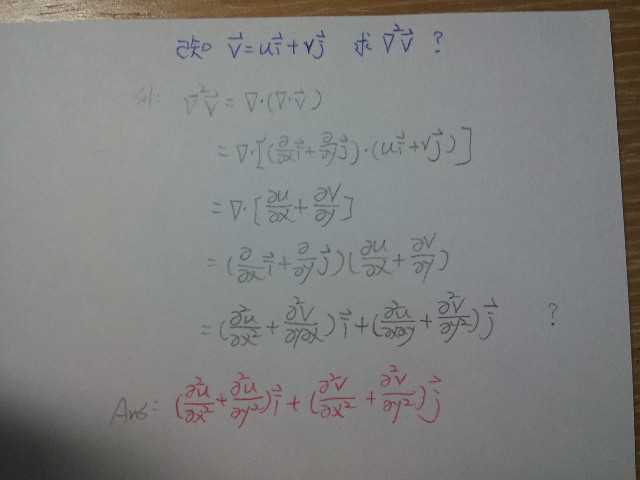 已知 $\vec{V}=u\vec{i}+v\vec{j}$ 求 $\nabla^2\vec{V}$ ?
Sol: $\nabla^2\vec{V}=\nabla\cdot(\nabla\cdot\vec{V})$
$=\nabla\cdot[(\frac{\partial}{\partial x}\vec{i}+\frac{\partial}{\partial y}\vec{j})\cdot(u\vec{i}+v\vec{j})]$
$=\nabla\cdot[\frac{\partial u}{\partial x}+\frac{\partial v}{\partial y}]$
$=(\frac{\partial}{\partial x}\vec{i}+\frac{\partial}{\partial y}\vec{j})(\frac{\partial u}{\partial x}+\frac{\partial v}{\partial y})$
$=(\frac{\partial^2 u}{\partial x^2}+\frac{\partial^2 v}{\partial y\partial x})\vec{i}+(\frac{\partial^2 u}{\partial x\partial y}+\frac{\partial^2 v}{\partial y^2})\vec{j}$ ?
Ans: $(\frac{\partial^2 u}{\partial x^2}+\frac{\partial^2 u}{\partial y^2})\vec{i}+(\frac{\partial^2 v}{\partial x^2}+\frac{\partial^2 v}{\partial y^2})\vec{j}$